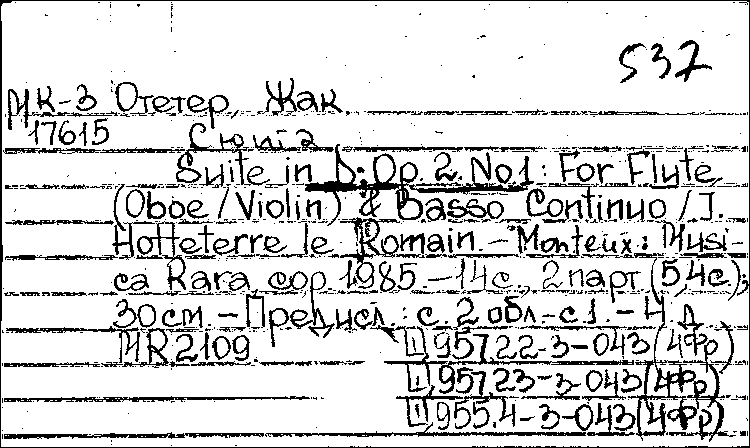 537
МК-3 Отетер, Жак.
17615 Сюита
Suite in D; Op. 2. No.1: For Flute
(Oboe/Violin) & Basso Continuo / J.
Hotteterre le Romain. - Monteux: Musi-
ca Rara, cop. 1985. - 14 с., 2 парт. (5,4с.);
30 см. - Предисл.: с. 2 обл.-с 1. - Н. Д
MR 2109. Ш,957.22-3-043(4Фр)
Ш,957.23-3-043(4Фр)
Ш,955.4-3-043(4Фр)